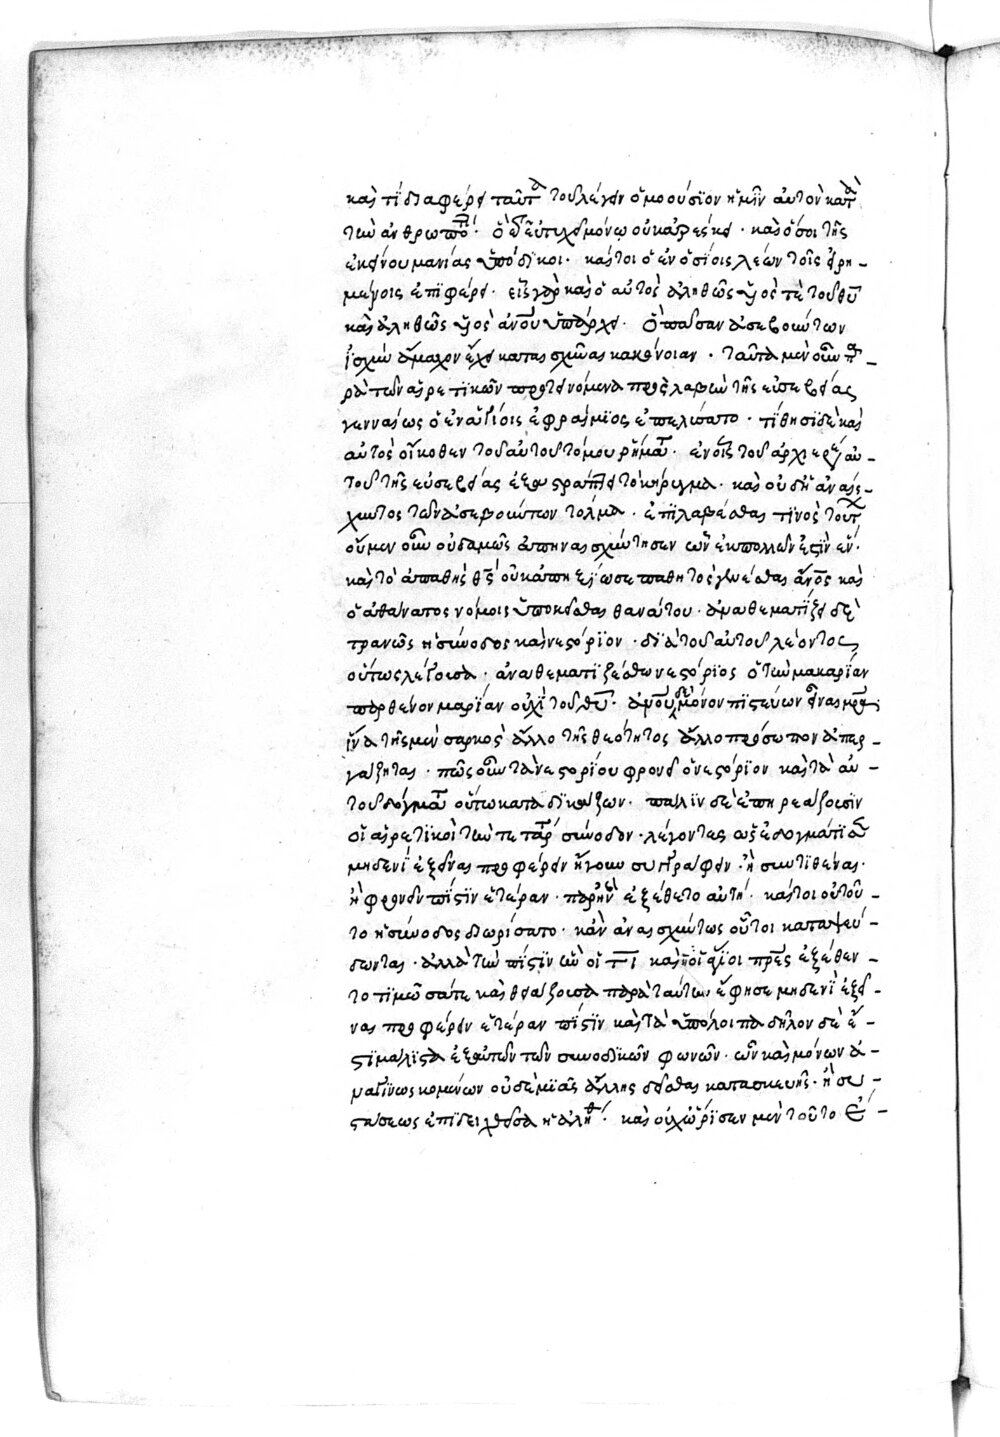 καὶ τί διαφέρει ταῦτα τοῦ λέγειν ὁμοούσιον ἡμῖν αὐτὸν κατὰ
τὴν ἀνθρωπό · ὁ δὲ εὐτυχεῖ μόνῳ οὐκ ἀρέσκει · καὶ ὅσοι τῆς
ἐκείνου μανίας ὑπόδικοι · καίτοι ὁ ἐν ὁσίοις λέων τοῖς εἰρη-
μένοις ἐπιφέρει · εἷς γὰρ καὶ ὁ αὐτὸς ἀληθῶς υἱὸς τὲ τοῦ θυ
καὶ ἀληθῶς υἱὸς ἀνου ὑπάρχει · ὃ πᾶσαν ἀσεβούντων
ἰσχὺν ἄμαχον ἔχει καταισχῦναι κακόνοιαν · ταῦτα μὲν οὖν πα-
ρὰ τῶν αἱρετικῶν προτεινόμενα προσλαβὼν τῆς εὐσεβείας
γενναίως ὁ ἐν ἁγίοις ἐφραίμιος ἐπελύσατο · τίθησι δὲ καὶ
αὐτὸς οἴκοθεν τοῦ αὐτοῦ τόμου ῥήματα · ἐν οἷς τοῦ ἀρχιερέως αὐ-
τοῦ τῆς εὐσεβείας ἐξαστράπτει τὸ κήρυγμα · καὶ οὐδὴ ἀναίς-
χυντος τῶν ἀσεβούντων τόλμα · ἐπιλαβέσθαι τινὸς τούτ
οὐμενοῦν οὐδαμῶς ἀπηναισχύντησεν ὧν ἐκ πολλῶν ἐστὶν ἕν ·
καὶ τὸ ἀπαθὴς θς οὐκ ἀπηξίωσε παθητὸς γενέσθαι ἄνος καὶ
ὁ ἀθάνατος νόμοις ὑποκεῖσθαι θανάτου · ἀναθεματίζει δὲ
τρανῶς ἡ σύνοδος καὶ νεστόριον · διὰ τοῦ αὐτοῦ λέοντος
οὕτως λέγουσα · ἀναθεματιζέσθω νεστόριος ὁ τὴν μακαρίαν
παρθένον μαρίαν οὐχὶ τοῦ θυ · ἀνου δὲ μόνον πιστεύων εἶναι μρα
ἵνα τῆς μὲν σαρκὸς ἄλλο τῆς θεότητος ἄλλο πρόσωπον ἀπερ-
γάζηται · πῶς οὖν τὰ νεστορίου φρονεῖ ὁ νεστόριον καὶ τὰ αὐ-
τοῦ δόγματα οὕτω καταδικάζων · πάλιν δὲ ἐπηρεάζουσιν
οἱ αἱρετικοὶ τὴν τετάρτ σύνοδον · λέγοντες ὡς ἐδογμάτισε
μηδενὶ ἐξεῖναι προφέρειν ἤγουν συγγράφειν · ἢ συντιθέναι ·
ἢ φρονεῖν πίστιν ἑτέραν · παρ' ἣν ἐξέθετο αὐτή · καίτοι οὐ τοῦ-
το ἡ σύνοδος διωρίσατο · κἂν ἀναισχύντως οὗτοι καταψεύ-
δωνται · ἀλλὰ τὴν πίστιν ἣν οἱ τιη καὶ οἱ ἅγιοι πρες ἐξέθεν-
το τιμῶσα τε καὶ θειάζουσα παρὰ ταύτην ἔφησε μηδενὶ ἐξεῖ-
ναι προφέρειν ἑτέραν πίστιν καὶ τὰ ὑπόλοιπα δῆλον δὲ ἔ-
στι μάλιστα ἐξ αὐτῶν τῶν συνοδικῶν φωνῶν · ὧν καὶ μόνων ἀ-
ναγινωσκομένων οὐδεμιᾶς ἄλλης δεῖσθαι κατασκευῆς · ἢ συ-
στάσεως ἐπιδειχθεῖσα ἡ ἀλήθ · καὶ οὐχ ὥρισεν μὲν τοῦτο ἐ-